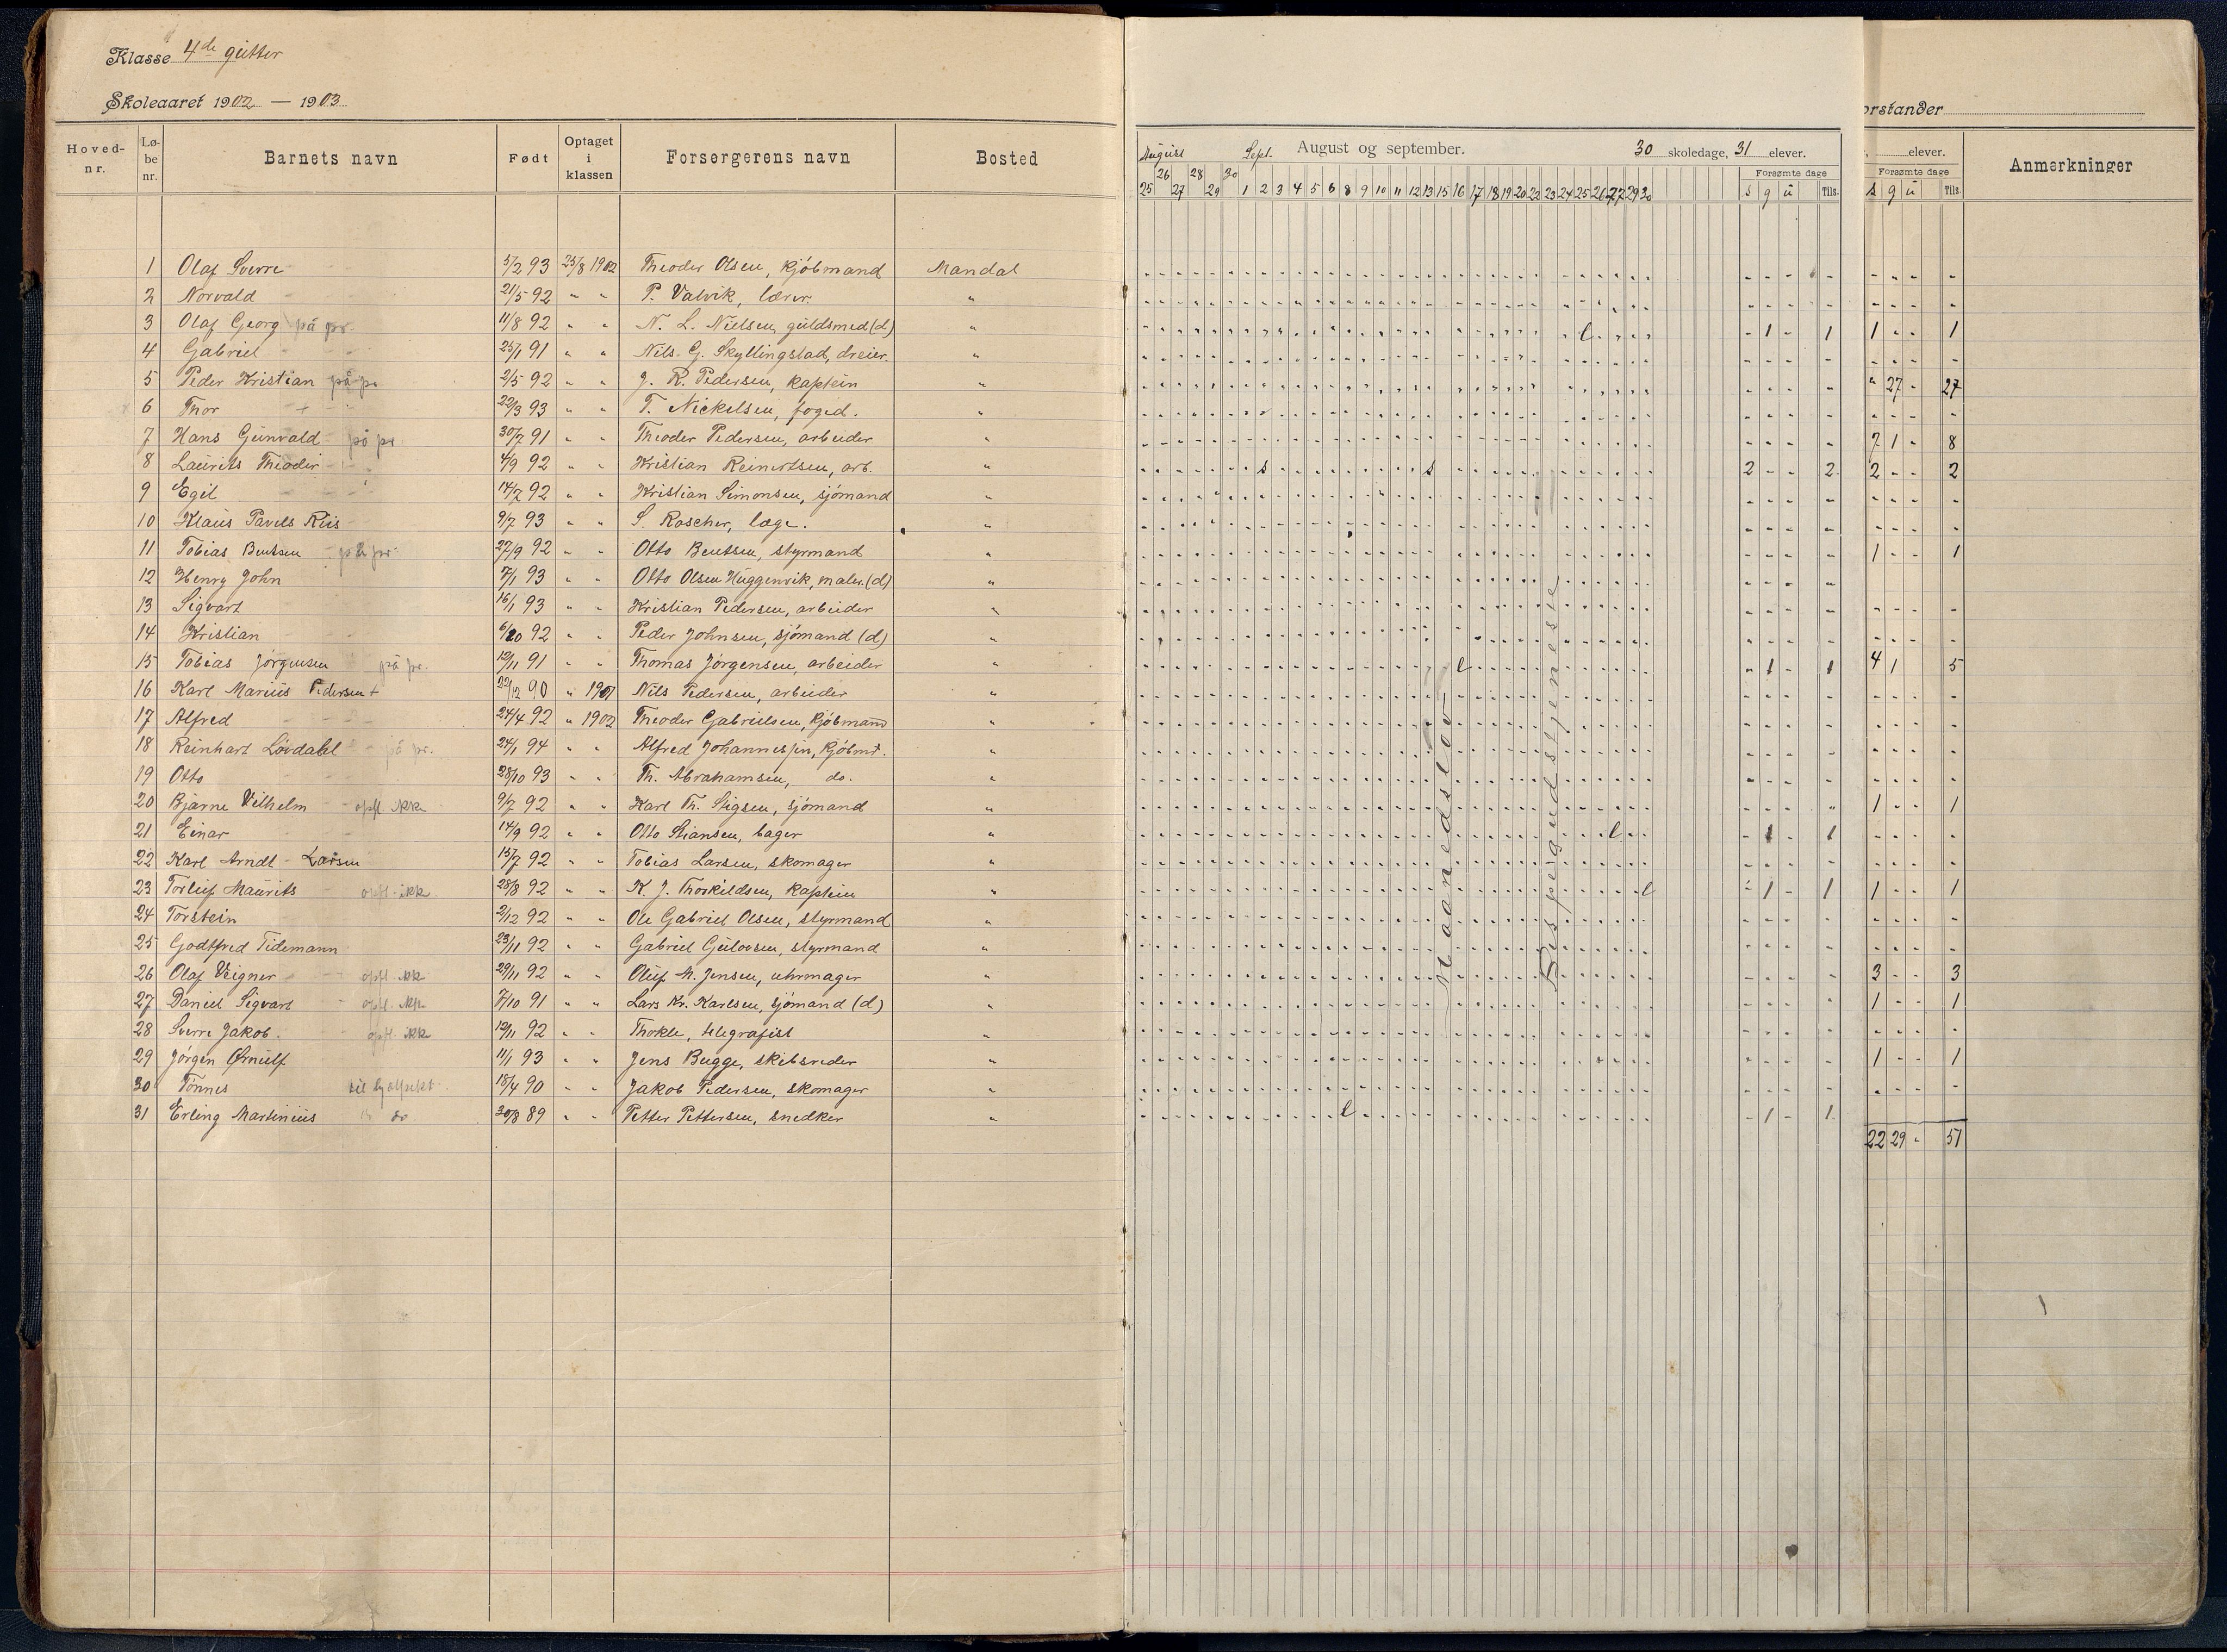 Klasse 4de gutter
Skoleaaret 1902 — 1903
Hoved-nr. Lø-be nr. Barnets navn Født Optaget i klassen Forsørgerens navn Bosted
1 Olaf Sverre 5/2 93 25/8 1902 Theodor Olsen, kjöbmand Mandal
2 Norvald 21/5 92 " " P. Valvik, lærer. "
3 Olaf Georg på pr. 11/8 92 " " N. L. Nielsen, guldsmed (d) "
4 Gabriel 25/1 91 " " Nils G. Skyllingstad, dreier. "
5 Peder Kristian på pr 2/5 92 " " J. R. Pedersen, kaptein "
6 Thor + 22/3 93 " " T. Nickelsen, foged. "
7 Hans Gunvald på pr 30/7 91 " " Theodor Pedersen, arbeider "
8 Laurits Theodir 4/9 92 " " Kristian Reinertsen, arb. "
9 Egil 14/7 92 " " Kristian Simonsen, sjömand "
10 Klaus Pavels Riis 9/7 93 " " S. Roscher, læge. "
11 Tobias Bentsen på pr. 27/9 92 " " Otto Bentsen, styrmand "
12 Henry John 7/1 93 " " Otto Olsen Huggenvik, maler (d) "
13 Sigvart 16/1 93 " " Kristian Pedersen, arbeider "
14 Kristian 6/20 92 " " Peder Johnsen, sjömand (d) "
15 Tobias Jörgensen på pr. 12/11 91 " " Thomas Jörgensen, arbeider "
16 Karl Marius Pedersen + 22/12 90 " 1901 Nils Pedersen, arbeider "
17 Alfred 24/4 92 " 1902 Theodor Gabrielsen, kjöbmand "
18 Reinhart Lövdahl på pr. 24/1 94 " " Alfred Johannesen, kjöbmd. "
19 Otto 28/10 93 " " Th. Abrahamsen, do. "
20 Bjarne Vilhelm opfl. ikke 9/7 92 " " Karl Th. Sigsen, sjömand "
21 Einar 14/9 92 " " Otto Stiansen, bager "
22 Karl Arndt Larsen 15/7 92 " " Tobias Larsen, skomager "
23 Torleif Maurits opfl. ikk 28/8 92 " " K. J. Thorkildsen, kaptein "
24 Torstein 2/12 92 " " Ole Gabriel Olsen, styrmand "
25 Godtfred Tidemann 23/11 92 " " Gabriel Gulovsen, styrmand "
26 Olaf Veigner opfl. ikk 29/11 92 " " Oluf M. Jensen, uhrmager "
27 Daniel Sigvart opfl. ikk 7/10 91 " " Lars Kr. Karlsen, sjömand (d) "
28 Sverre Jakob. opfl. ikk 12/11 92 " " Thorkle, telegrafist "
29 Jörgen Ørnulf 11/1 93 " " Jens Bugge, skibsreder "
30 Tönnes 18/4 90 " " Jakob Pedersen, skomager "
31 Erling Martinius do 30/8 89 " " Petter Pettersen, snedker "
August Sept. August og september. 30 skoledage, 31 elever.
25 26 27 28 29 30 1 2 3 4 5 6 8 9 10 11 12 13 15 16 17 18 19 20 22 23 24 25 26 27 29 30
Forsømte dage
s g u Tils.
l 1 1
s s 2 2
l 1 1
l 1 1
l 1 1
l 1 1
Maanedslov
Bispegudstjeneste
orstander
elever.
Forsømte dage
s g u Tils.
Anmærkninger
1 1
27 27
7 1 8
2 2
1 1
4 1 5
1 1
1 1
3 3
1 1
1 1
22 29 51